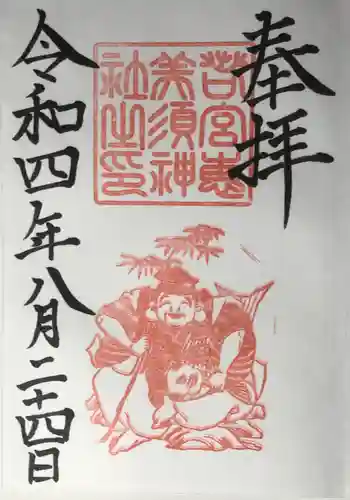 奉拝
若宮恵
美須神
社之印
令和四年八月二十四日